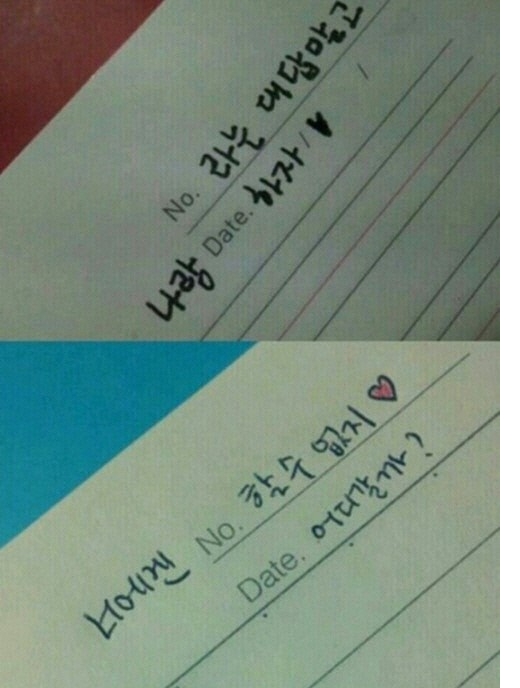 No. 라는 대답말고
나랑 Date. 하자!
너에겐 No. 할수 없지♡
Date. 어디갈까?